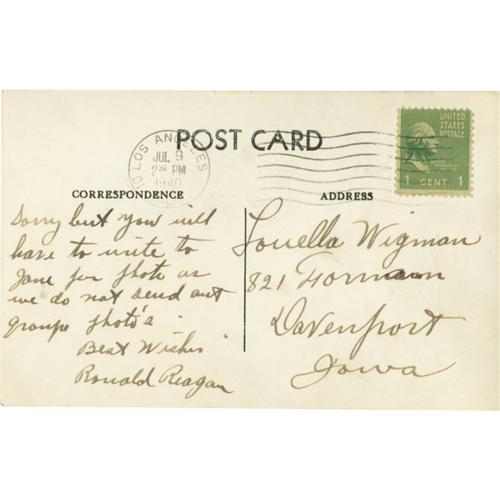 POST CARD
LOS ANGELES
JUL 9
2 30 PM
1940
UNITED
STATES
POSTAGE
1 CENT 1
CORRESPONDENCE
Sorry but you will
have to write to
Jane for photo as
we do not send out
groupe photo's.
Best Wishes
Ronald Reagan
ADDRESS
Louella Wigman
821 Formann
Davenport
Iowa